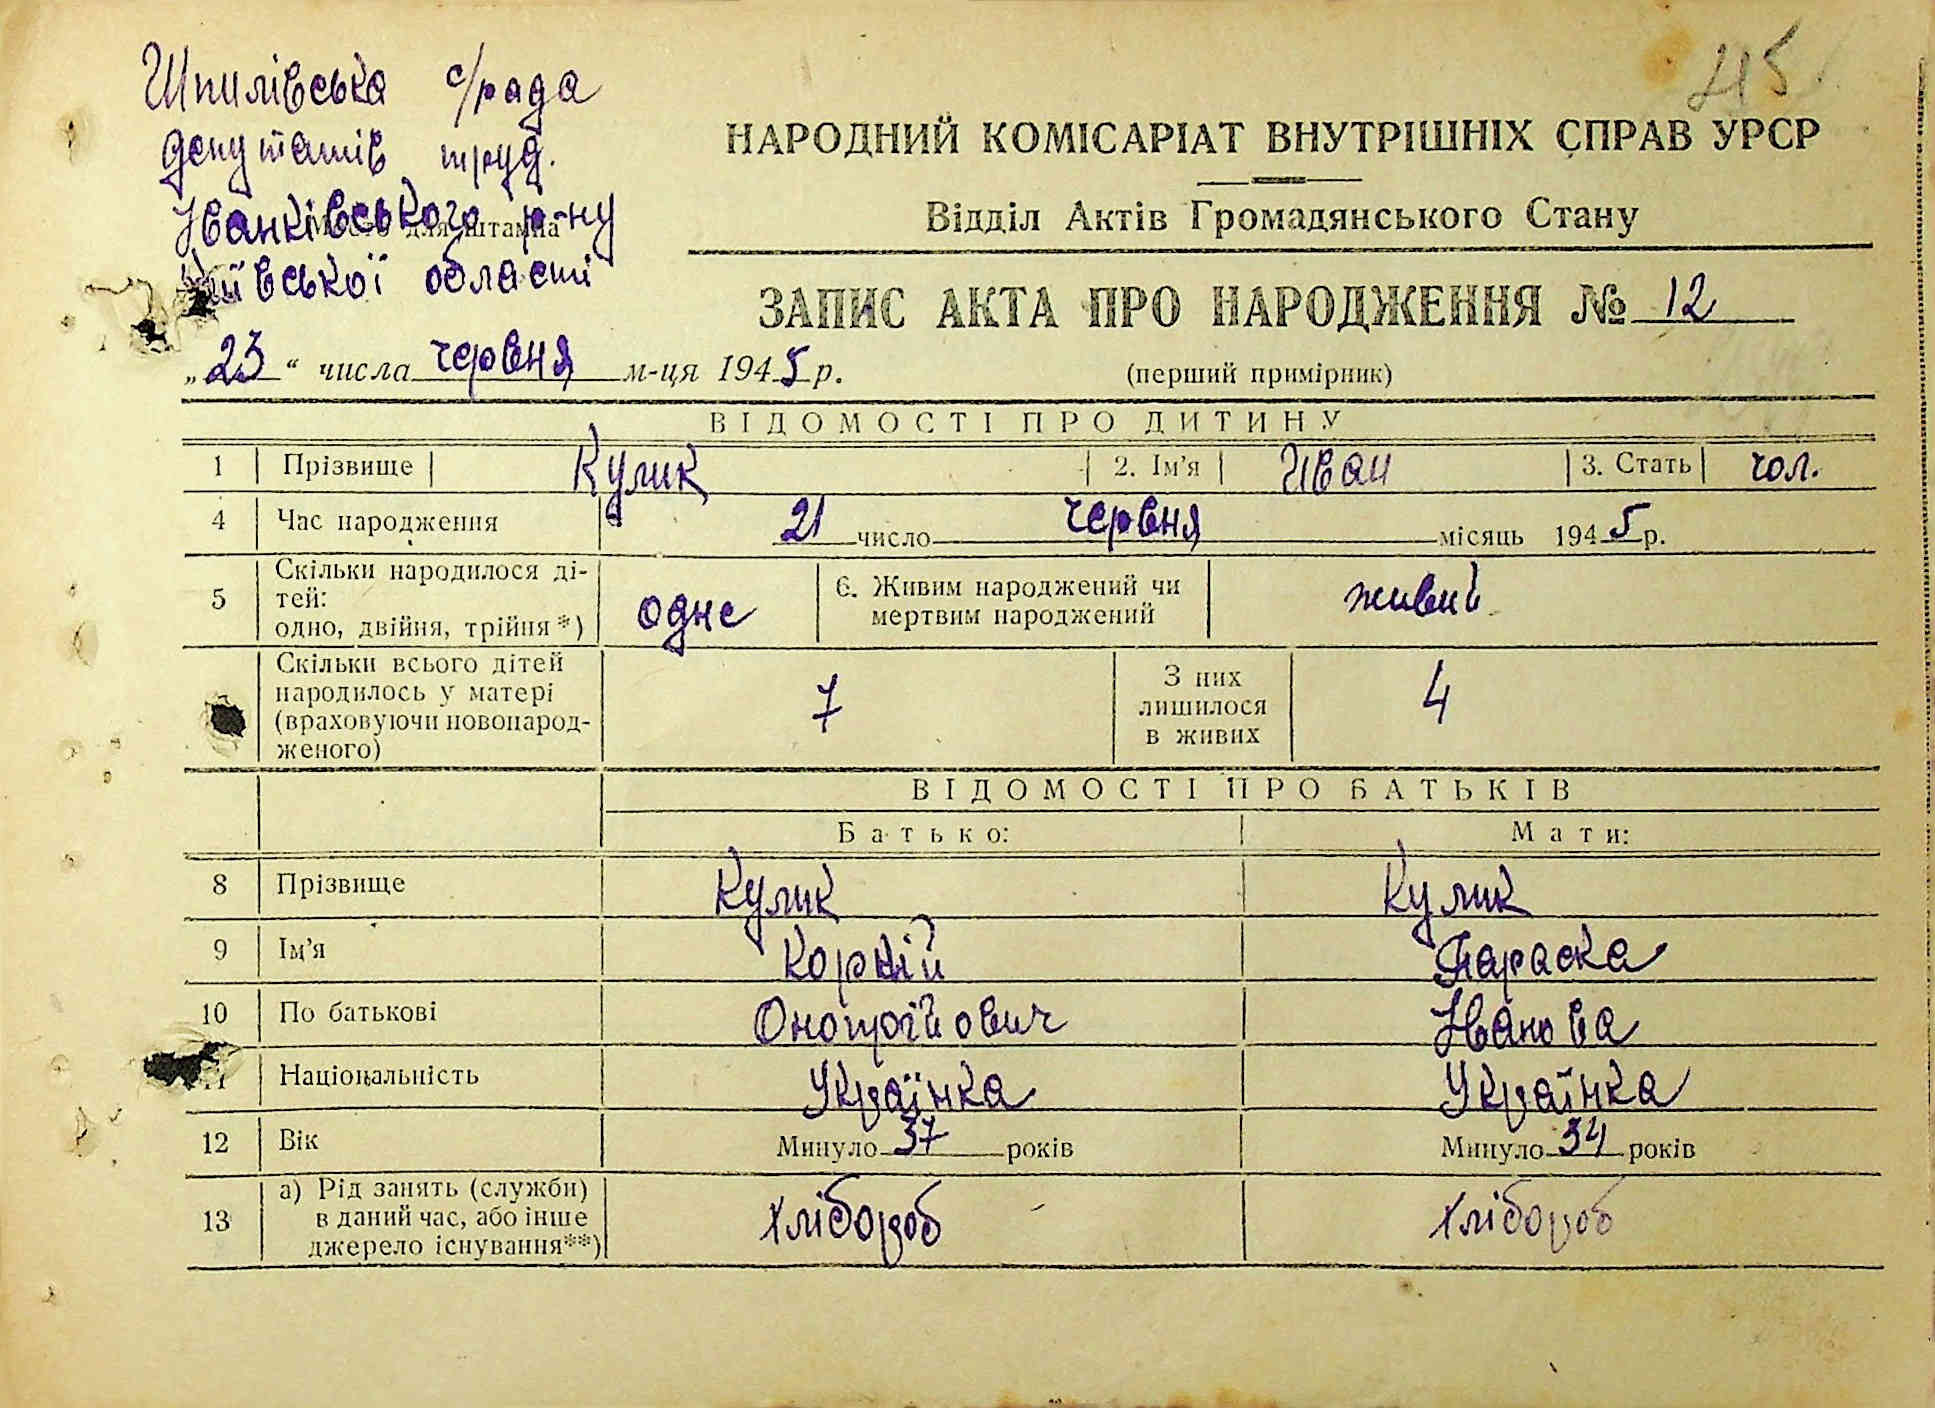 Шпилівська с/рада
депутатів труд.
Іванківського р-ну
Київської області
Місце для штампа
415
НАРОДНИЙ КОМІСАРІАТ ВНУТРІШНІХ СПРАВ УРСР
Відділ Актів Громадянського Стану
ЗАПИС АКТА ПРО НАРОДЖЕННЯ № 12
„23“ числа червня м-ця 1945 р.
(перший примірник)
ВІДОМОСТІ ПРО ДИТИНУ
1 Прізвище Кулик 2. Ім'я Иван 3. Стать чол.
4 Час народження 21 число червня місяць 1945 р.
5 Скільки народилося ді-
тей:
одно, двійня, трійня*) одне 6. Живим народжений чи
мертвим народжений живий
Скільки всього дітей
народилось у матері
(враховуючи новонарод-
женого) 7 З них
лишилося
в живих 4
ВІДОМОСТІ ПРО БАТЬКІВ
Батько: Мати:
8 Прізвище Кулик Кулик
9 Ім'я Корній Параска
10 По батькові Онопрійович Іванова
11 Національність Українка Українка
12 Вік Минуло 37 років Минуло 34 років
13 а) Рід занять (служби)
в даний час, або інше
джерело існування**) хлібороб хлібороб